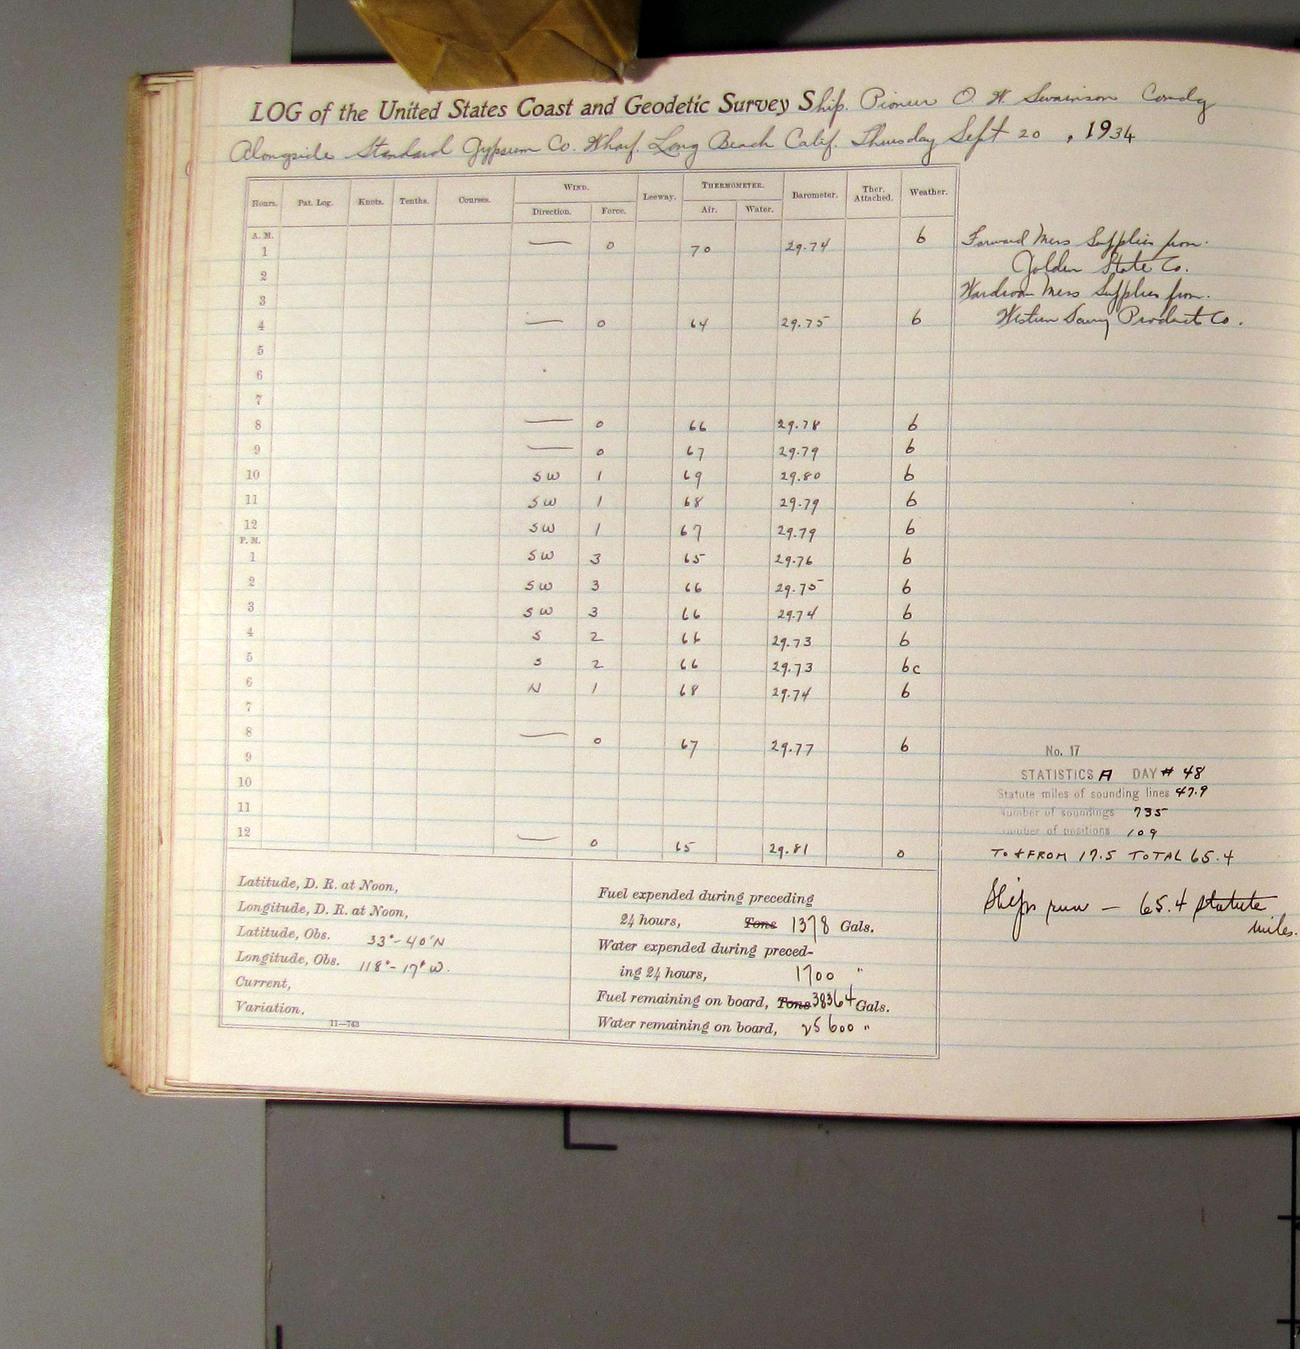 LOG of the United States Coast and Geodetic Survey Ship. Pioneer O. W. Swainson Comdg
Alongside Standard Gypsum Co. Wharf. Long Beach Calif. Thursday Sept 20, 1934
Hours. Pat. Log. Knots. Tenths. Courses. WIND. Leeway. THERMOMETER. Barometer. Ther. Attached. Weather.
Direction. Force. Air. Water.
A. M.
1 — 0 70 29.74 b
2
3
4 — 0 64 29.75 b
5
6
7
8 — 0 66 29.78 b
9 — 0 67 29.79 b
10 SW 1 69 29.80 b
11 SW 1 68 29.79 b
12 SW 1 67 29.79 b
P. M.
1 SW 3 65 29.76 b
2 SW 3 66 29.75 b
3 SW 3 66 29.74 b
4 S 2 66 29.73 b
5 S 2 66 29.73 bc
6 N 1 68 29.74 b
7
8 — 0 67 29.77 b
9
10
11
12 — 0 65 29.81 0
Forward Mess Supplies from.
Golden State Co.
Wardroom Mess Supplies from.
Western Product Co.
No. 17
STATISTICS A DAY # 48
Statute miles of sounding lines 47.9
Number of soundings 735
Number of positions 109
TO & FROM 17.5 TOTAL 65.4
Ships run — 65.4 statute
miles.
Latitude, D. R. at Noon,
Longitude, D. R. at Noon,
Latitude, Obs. 33°-40' N
Longitude, Obs. 118°-17' W.
Current,
Variation,
11—743
Fuel expended during preceding
24 hours, Tons 1378 Gals.
Water expended during preced-
ing 24 hours, 1700 "
Fuel remaining on board, Tons 38364 Gals.
Water remaining on board, 25600 "